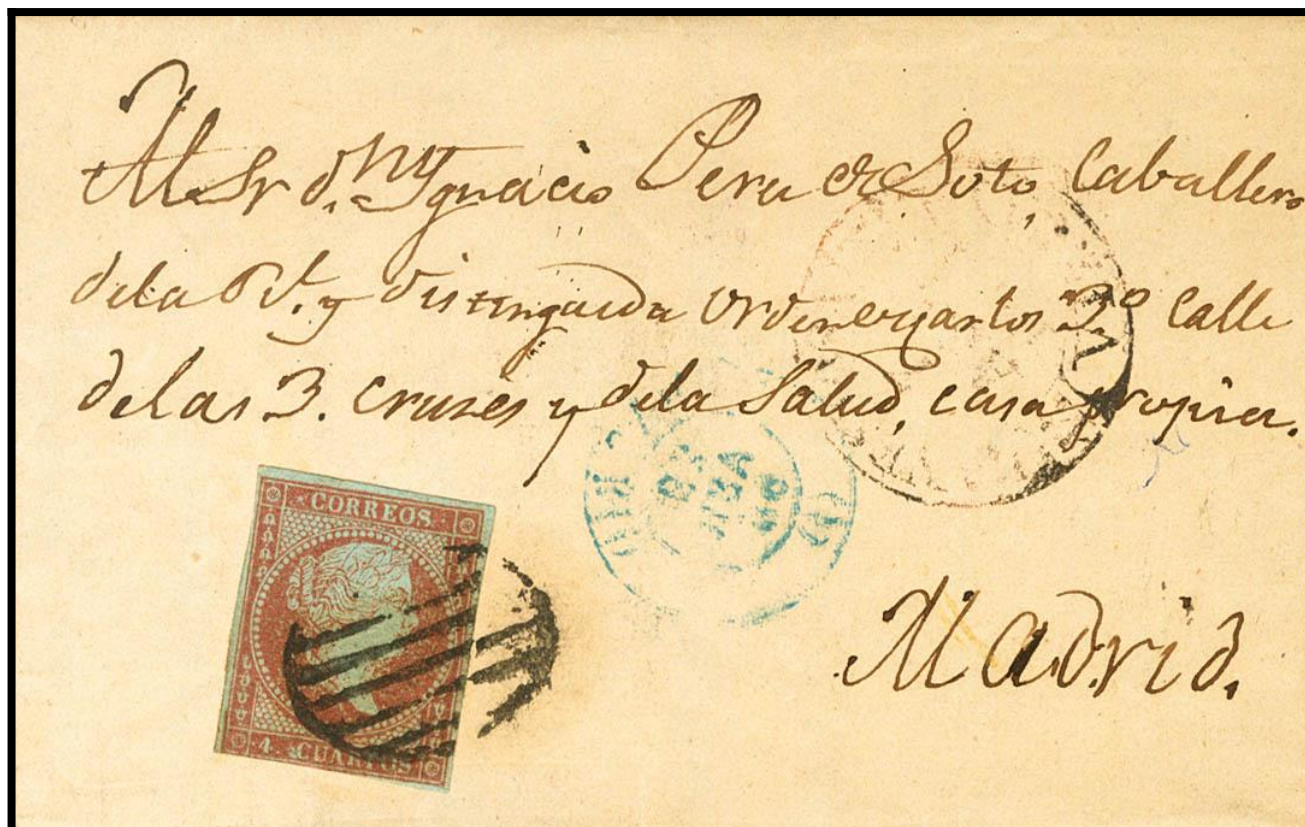 Al Sr. d.n Ygnacio Pera de Soto, Caballero
de la Rl. y distinguida Orden Carlos 3.º Calle
de las 3. Cruzes y de la Salud, casa propia.
Madrid.
CORREOS
4. CUARTOS